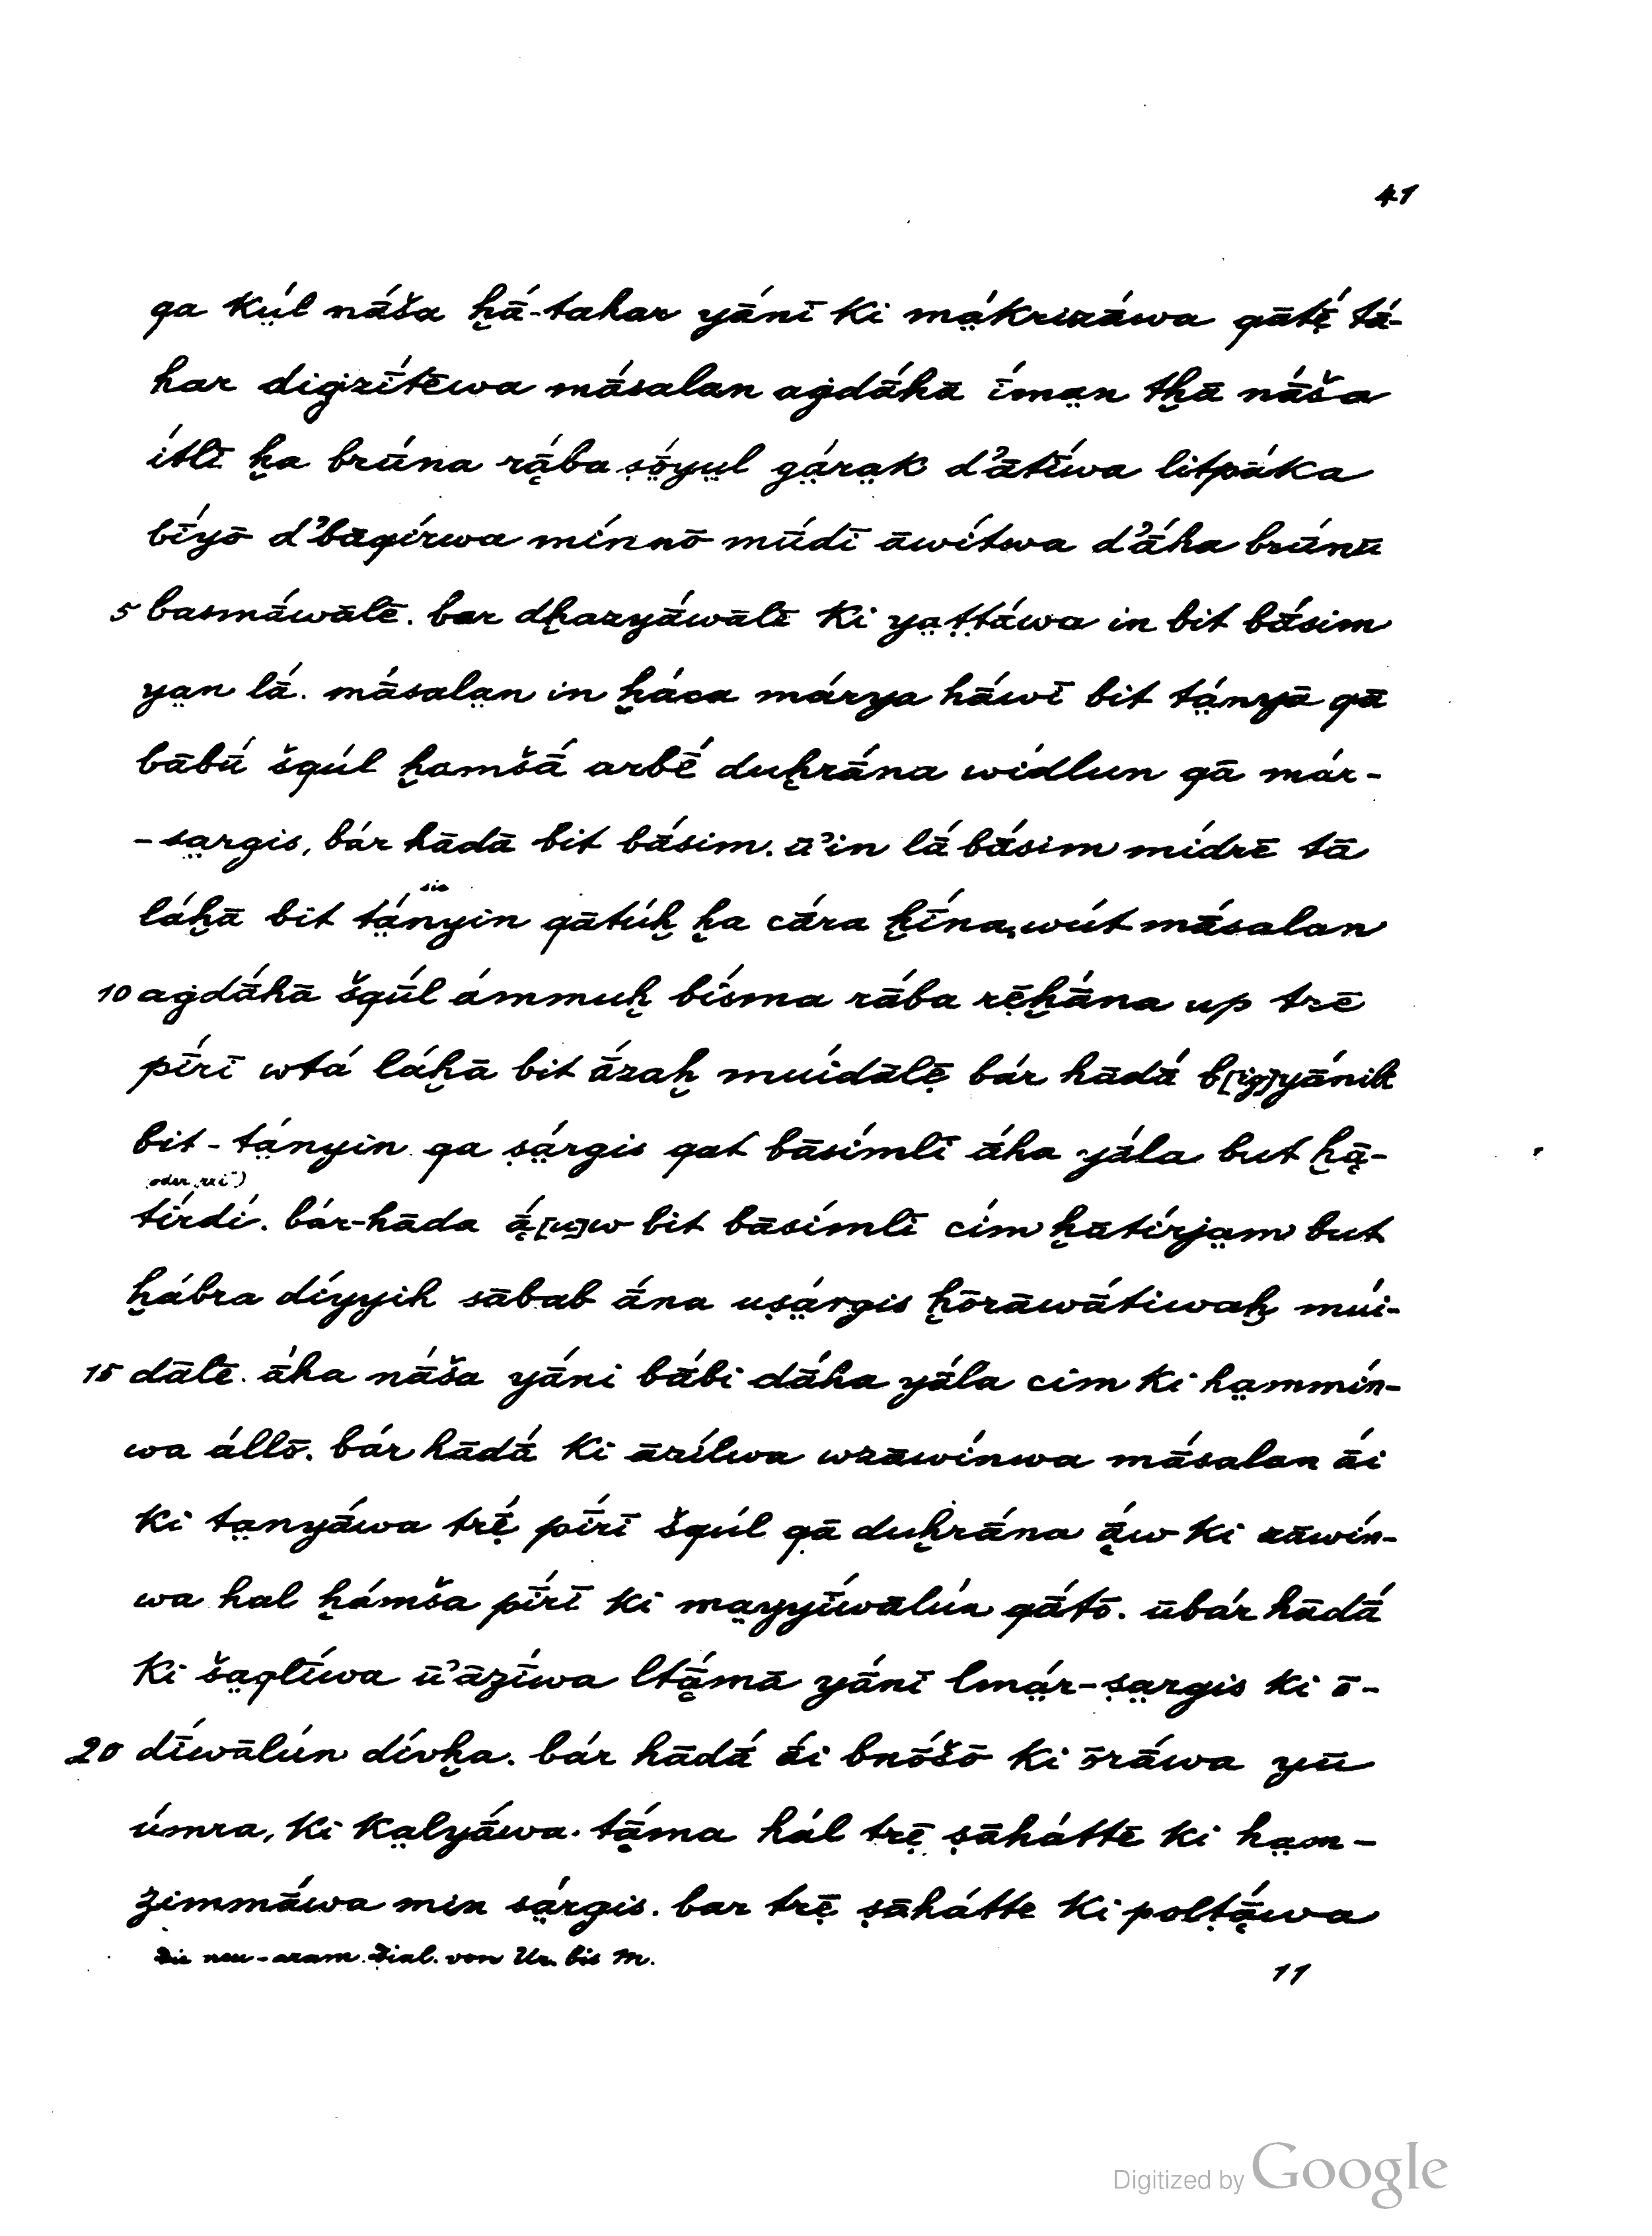 41
qa kṳ́l nā́ša ḫā́-tahar yā́nī ki ma̤krizā́wa qātẹ̄́ tā́-
har digzī́tēwa mā́salan aġdā́hā ī́ma̤n tḫā nā́ša
ítlī ḫa brū́na rā̤́ba ṣō̤yṳl gá̤ra̤k d’ātī́wa litpā́ka
bī́yō d’bāqírwa mínnō mū́dī āwítwa d’ā́ha brū́nū
5 basmā́wālē. bar dḫazyā́wālē ki ya̤ṭṭā́wa in bit bā́sim
ya̤n lā́. mā́sala̤n in ḫáca márya hā́wī bit tá̤nyā qā
bābū́ šqúl ḫamšā́ arbḗ duḫrā́na wídlun qā már-
-sa̤rgis, bár hādā bit bā́sim. ū’in lā́ bā́sim mídrē tā
sic
láḫā bit tá̤nyin qātúḫ ḫa cā́ra ḫī́na, wút mā́salan
10 aġdā́hā šqū́l ámmuḫ bísma rā́ba rē̤ḫā́na up trē
pī́rī wtā́ láḫā bit ā́zaḫ muídālē̤ bár hādā́ b[ig]yā́nilt
bit-tá̤nyin qa ṣá̤rgis qat bāsímlī ā́ha yā́la but ḫā̤-
oder „rri“)
tírdí. bár-hāda ā̤́[u]w bit bāsímlī cím ḫātírja̤m but
ḫábra díyyih sābab ā́na uṣá̤rgis ḫōrāwā́tiwaḫ múi-
15 dālē. ā́ha nā́ša yā́ni bā́bi dā́ha yā́la cim ki ha̤mmín-
wa állō. bár hādā́ ki āzílwa wzāwínwa mā́salan ā́i
ki ta̤nyā́wa trẹ̄́ pī́rī šqúl qā duḫrā́na ā̤́w ki zāwín-
wa hal ḫámša pī́rī ki ma̤yyī́wālún qā́tō. ūbár hādā́
ki ša̤qlī́wa ū’āzī́wa ltā̤́mā yā́nī lmá̤r-ṣa̤rgis ki ō-
20 dī́wālún dívḫa. bár hādā́ ā́i bnṓšō ki ōrā́wa yū
úmra, ki ka̤lyā́wa. tā̤́ma hál trē̤ ṣāháttē ki ha̤m-
zimmā́wa min sá̤rgis. bar trē̤ ṣāhátte ki polṭā̤́wa
Die neu-aram. Dial. von Ur. bis M.
11
Digitized by Google